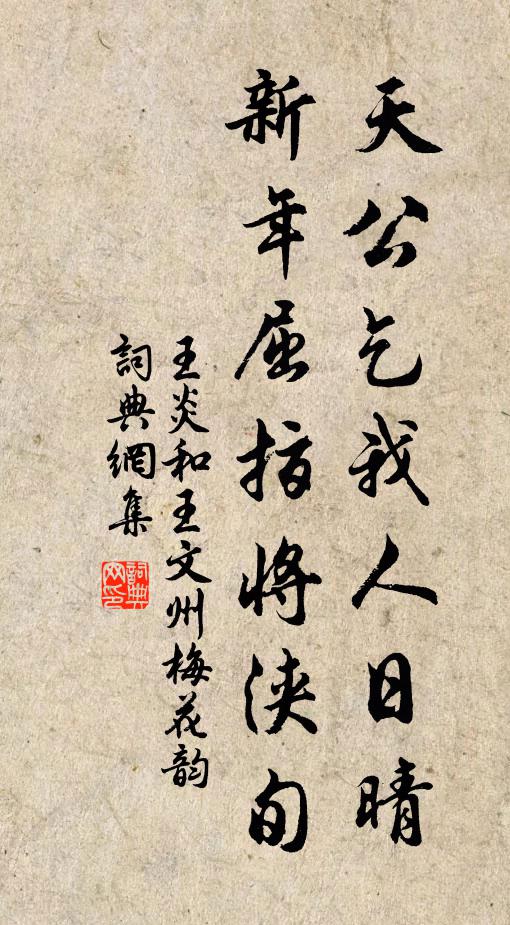 天公乞我人日晴
新年屈指将浹旬
王炎和王文州梅花韵
詞典網集
詞典网印